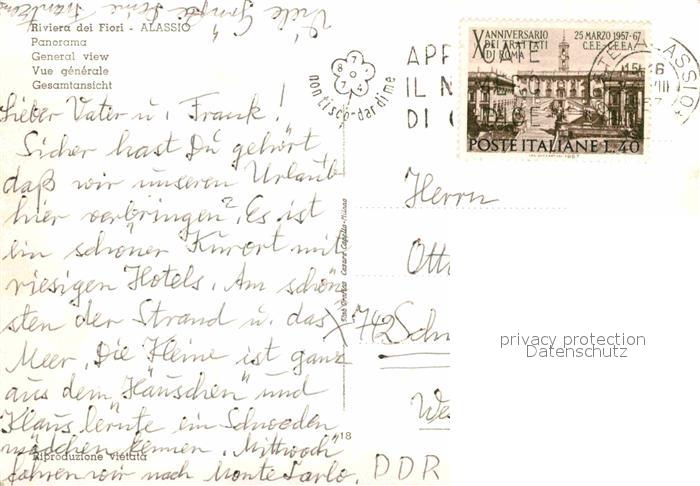 Viele Grüße
Riviera dei Fiori - ALASSIO
Panorama
General view
Vue générale
Gesamtansicht
Lieber Vater u. Frank!
Sicher hast Du gehört
daß wir unseren Urlaub
hier verbringen? Es ist
ein schöner Kurort mit
riesigen Hotels. Am schön
sten der Strand u. das
Meer. Die Kleine ist ganz
aus dem "Häuschen" und
Klaus lernte ein Schweden
mädchen kennen. Mittwoch
fahren wir nach Monte Carlo.
18
Riproduzione vietata
non tisco-dardime
Cesare Capello-Milano
X ANNIVERSARIO
DEI TRATTATI
DI ROMA
25 MARZO 1957-67
C.E.E.-C.E.E.A.
POSTE ITALIANE L.40
1967
ALASSIO
IL N
DI
Herrn
Otto
X 742 Schm
We
DDR
privacy protection
Datenschutz